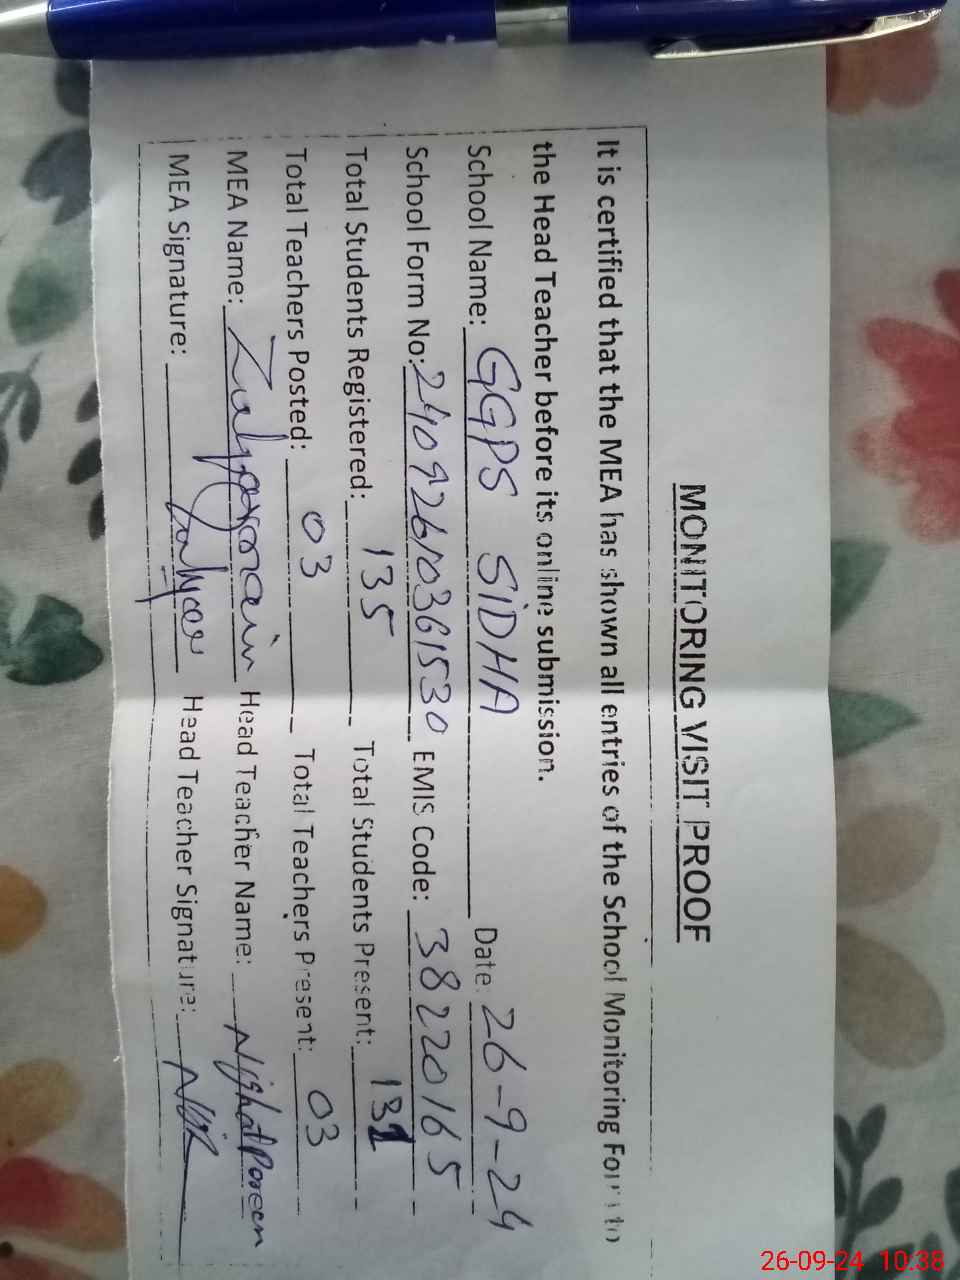 MONITORING VISIT PROOF
It is certified that the MEA has shown all entries of the School Monitoring Form to
the Head Teacher before its online submission.
School Name: GGPS SIDHA Date: 26-9-24
School Form No: 24092610361530 EMIS Code: 38220165
Total Students Registered: 135 Total Students Present: 131
Total Teachers Posted: 03 Total Teachers Present: 03
MEA Name: Zulqarnain Head Teacher Name: Nighat Parveen
MEA Signature: Head Teacher Signature:
26-09-24 10:38